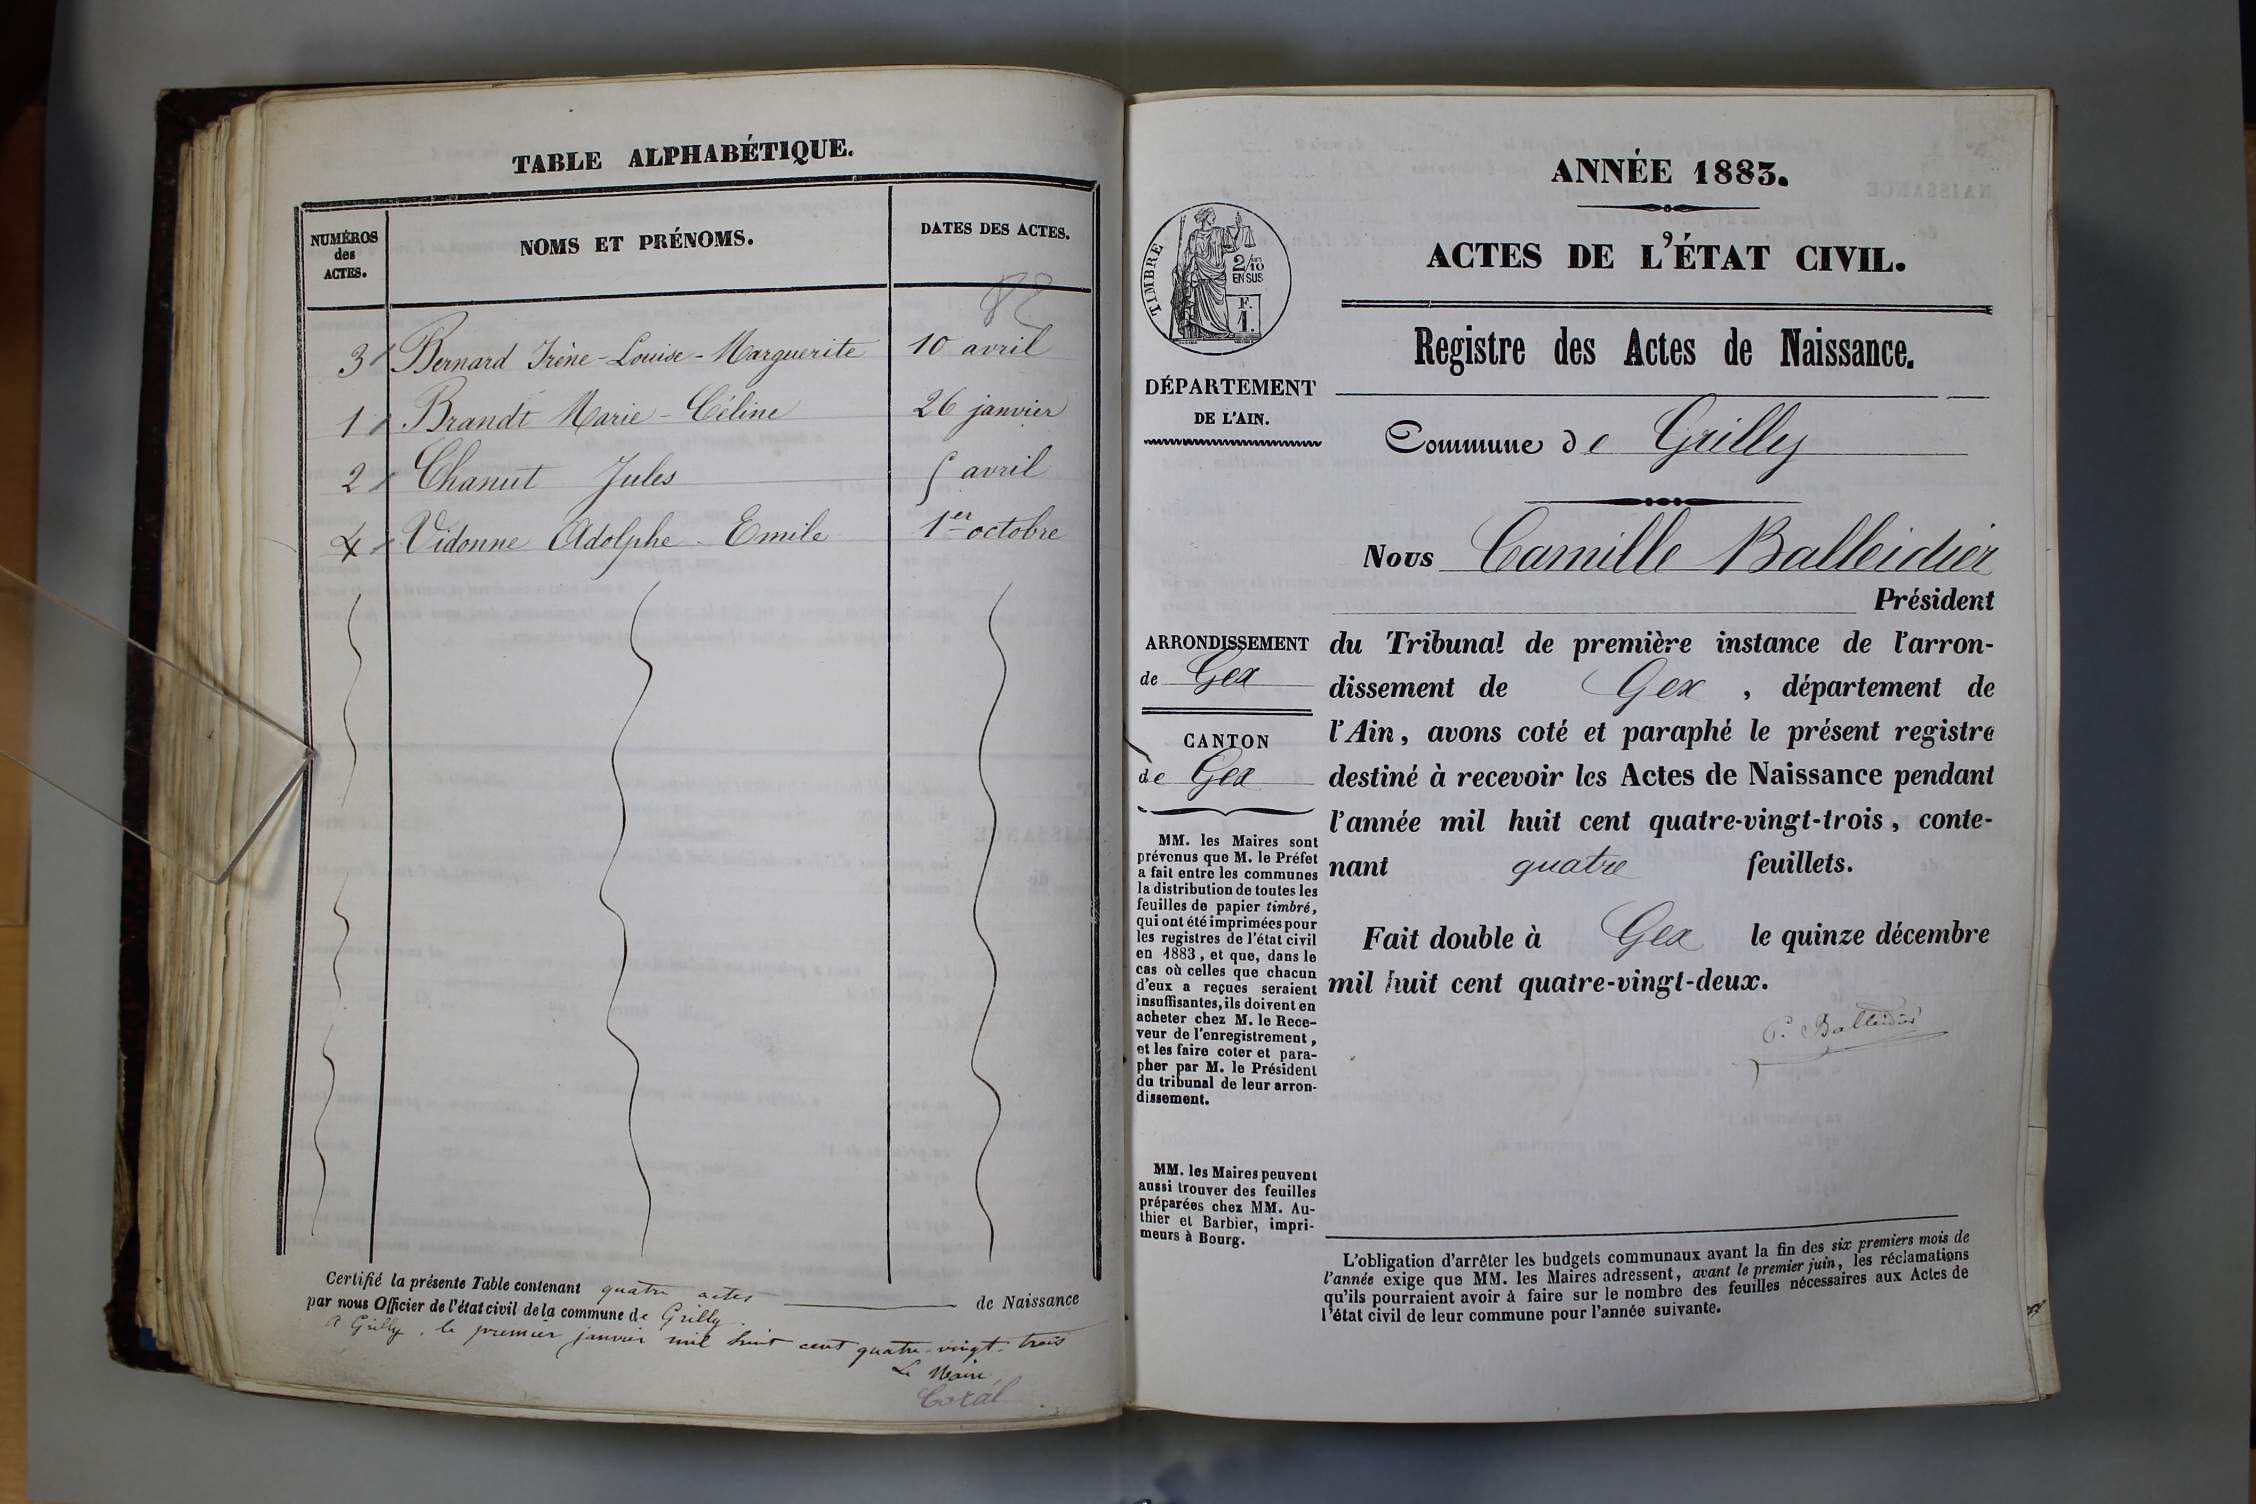 TABLE ALPHABÉTIQUE.
NUMÉROS
des
ACTES.
NOMS ET PRÉNOMS.
DATES DES ACTES.
82
3 Bernard Irène-Louise-Marguerite 10 avril
1 Brandt Marie-Céline 26 janvier
2 Chanut Jules 5 avril
4 Vidonne Adolphe-Emile 1er octobre
Certifié la présente Table contenant quatre actes de Naissance
par nous Officier de l'état civil de la commune de Grilly.
A Grilly, le premier janvier mil huit cent quatre-vingt-trois
Le Maire,
ANNÉE 1883.
ACTES DE L'ÉTAT CIVIL.
TIMBRE
2/10
EN SUS
F.
1.
DÉPARTEMENT
DE L'AIN.
Registre des Actes de Naissance.
Commune de Grilly
Nous Camille Balleidier
Président
ARRONDISSEMENT
de Gex
CANTON
de Gex
du Tribunal de première instance de l'arron-
dissement de Gex, département de
l'Ain, avons coté et paraphé le présent registre
destiné à recevoir les Actes de Naissance pendant
l'année mil huit cent quatre-vingt-trois, conte-
nant quatre feuillets.
Fait double à Gex le quinze décembre
mil huit cent quatre-vingt-deux.
C. Balleidier
MM. les Maires sont
prévenus que M. le Préfet
a fait entre les communes
la distribution de toutes les
feuilles de papier timbré,
qui ont été imprimées pour
les registres de l'état civil
en 1883, et que, dans le
cas où celles que chacun
d'eux a reçues seraient
insuffisantes, ils doivent en
acheter chez M. le Rece-
veur de l'enregistrement,
et les faire coter et para-
pher par M. le Président
du tribunal de leur arron-
dissement.
MM. les Maires peuvent
aussi trouver des feuilles
préparées chez MM. Au-
thier et Barbier, impri-
meurs à Bourg.
L'obligation d'arrêter les budgets communaux avant la fin des six premiers mois de
l'année exige que MM. les Maires adressent, avant le premier juin, les réclamations
qu'ils pourraient avoir à faire sur le nombre des feuilles nécessaires aux Actes de
l'état civil de leur commune pour l'année suivante.